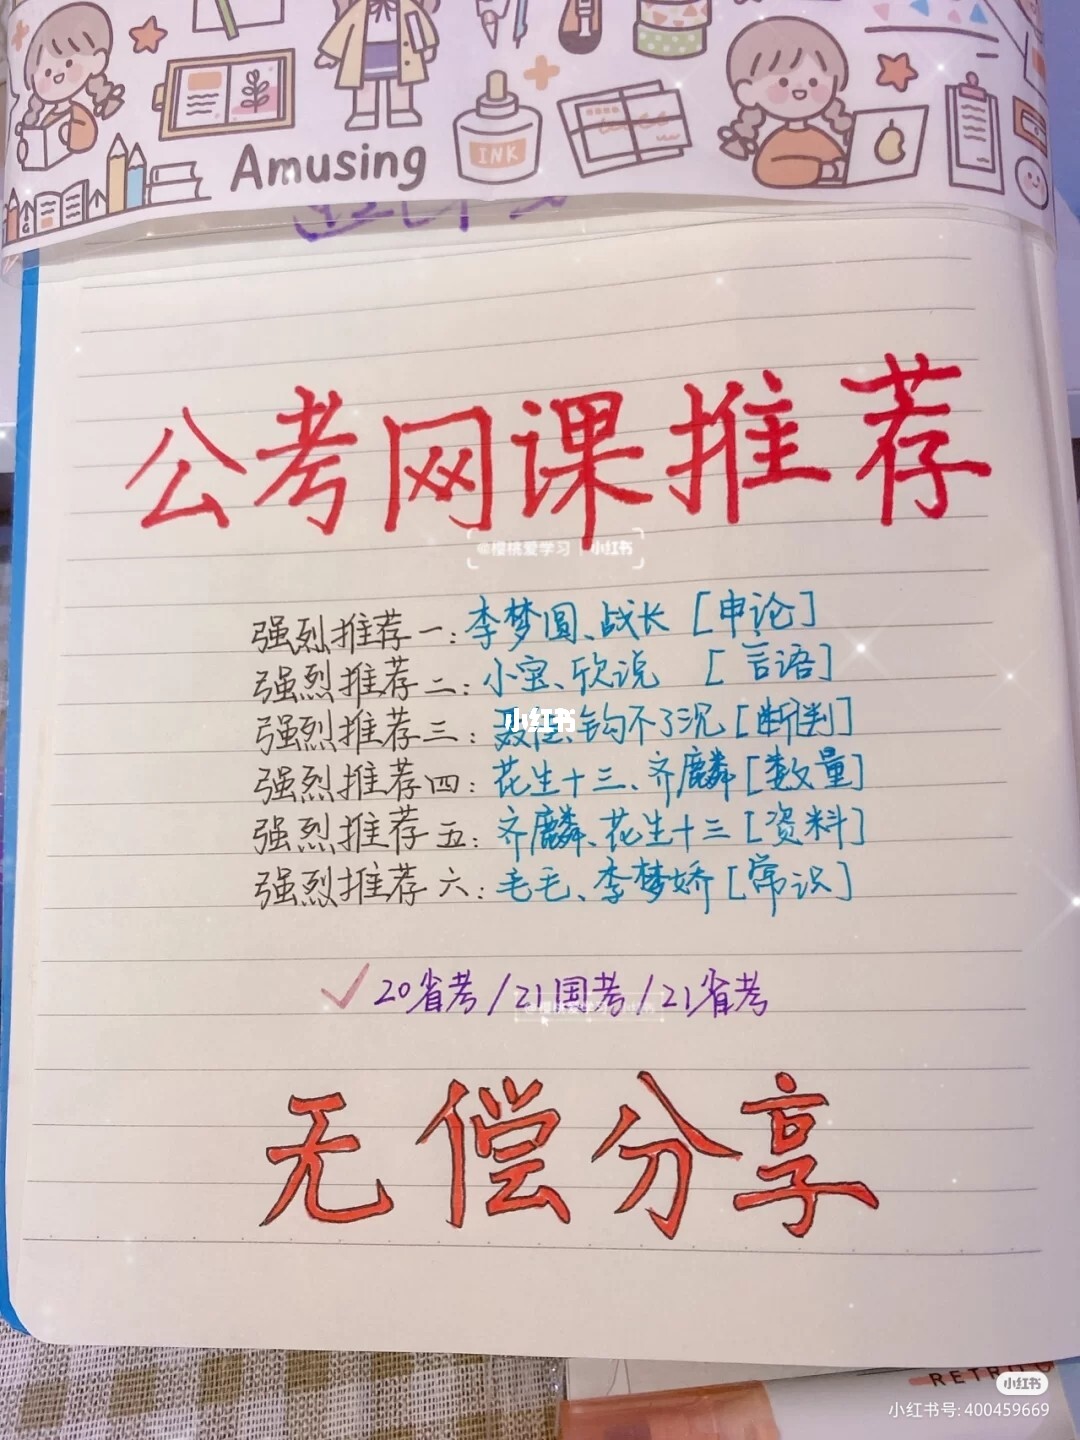 INK
Amusing
公考网课推荐
@樱桃爱学习 | 小红书
强烈推荐一:李梦圆、战长[申论]
强烈推荐二:小宝、欣说 [言语]
强烈推荐三:聂佳、钩不了沉[断判]
小红书
强烈推荐四:花生十三、齐麟[数量]
强烈推荐五:齐麟、花生十三[资料]
强烈推荐六:毛毛、李梦娇[常识]
✓20省考/21国考/21省考
无偿分享
RETRO
小红书
小红书号:400459669